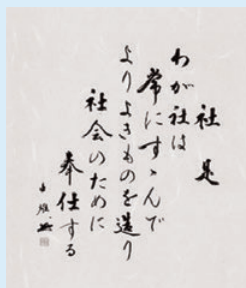 社是
わが社は
常にすゝんで
よりよきものを造り
社会のために
奉仕する